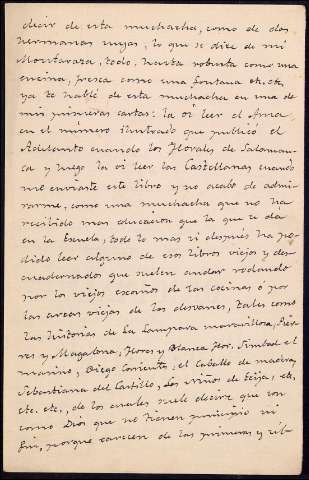 decir de esta muchacha, como de dos
hermanas suyas, lo que se dice de mi
Montaraza, todo, hasta robusta como una
encina, fresca como una fontana etc. etc,
ya te hablé de esta muchacha en una de
mis primeras cartas: la oí leer el Ama,
en el número ilustrado que publicó el
Adelanto cuando los Florales de Salaman-
ca y luego la oí leer las Castellanas cuando
me enviaste este libro y no acabo de admi-
rarme, como una muchacha que no ha
recibido mas educacion que la que se da
en la Escuela, todo lo mas si después ha po-
dido leer alguno de esos libros viejos y des-
cuadernados que suelen andar rodando
por los viejos escaños de las cocinas ó por
las arcas viejas de los desvanes, tales como
las historias de La Lampara maravillosa, Pier-
res y Magalona, Flores y Blanca flor, Simbad el
marino, Diego Corrientes, el Caballo de madera,
Sebastiana del Castillo, Los Niños de Ecija, etc,
etc. etc., de los cuales suele decirse que son
como Dios que no tienen principio ni
fin, porque carecen de las primeras y últi-